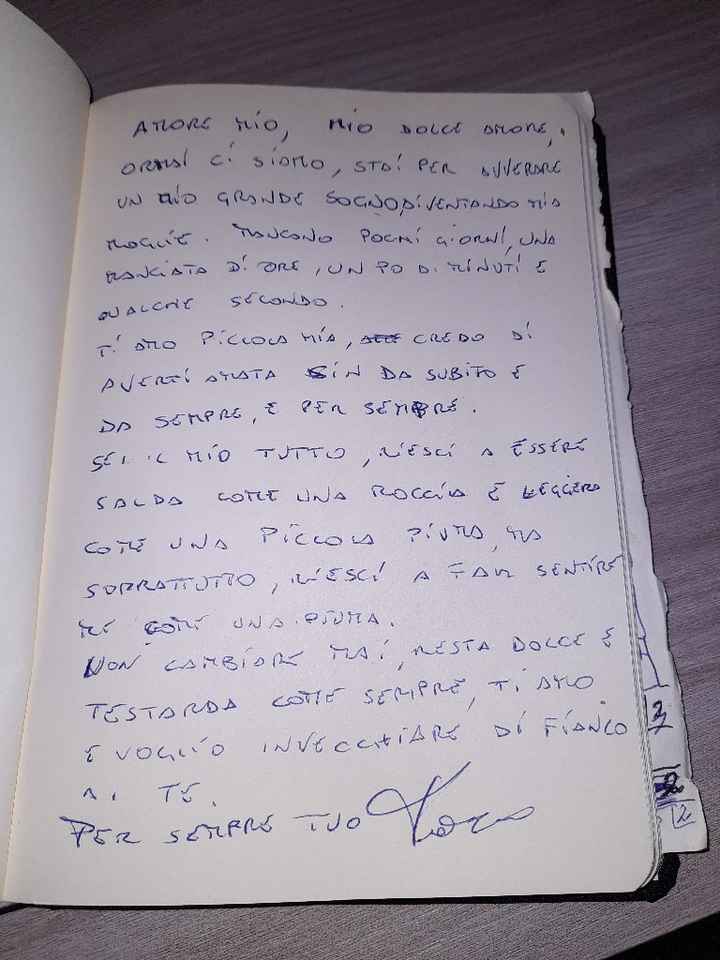 AMORE MIO, MIO DOLCE AMORE,
ORMAI CI SIAMO, STAI PER AVVERARE
UN MIO GRANDE SOGNO, DIVENTANDO MIA
MOGLIE. MANCANO POCHI GIORNI, UNA
MANCIATA DI ORE, UN PO DI MINUTI E
QUALCHE SECONDO.
TI AMO PICCOLA MIA, CREDO DI
AVERTI AMATA SIN DA SUBITO E
DA SEMPRE, E PER SEMPRE.
SEI IL MIO TUTTO, RIESCI A ESSERE
SALDA COME UNA ROCCIA E LEGGERA
COME UNA PICCOLA PIUMA, MA
SOPRATTUTTO, RIESCI A FAR SENTIRE
ME COME UNA PIUMA.
NON CAMBIARE MAI, RESTA DOLCE E
TESTARDA COME SEMPRE, TI AMO
E VOGLIO INVECCHIARE DI FIANCO
A TE.
PER SEMPRE TUO
3
2
12